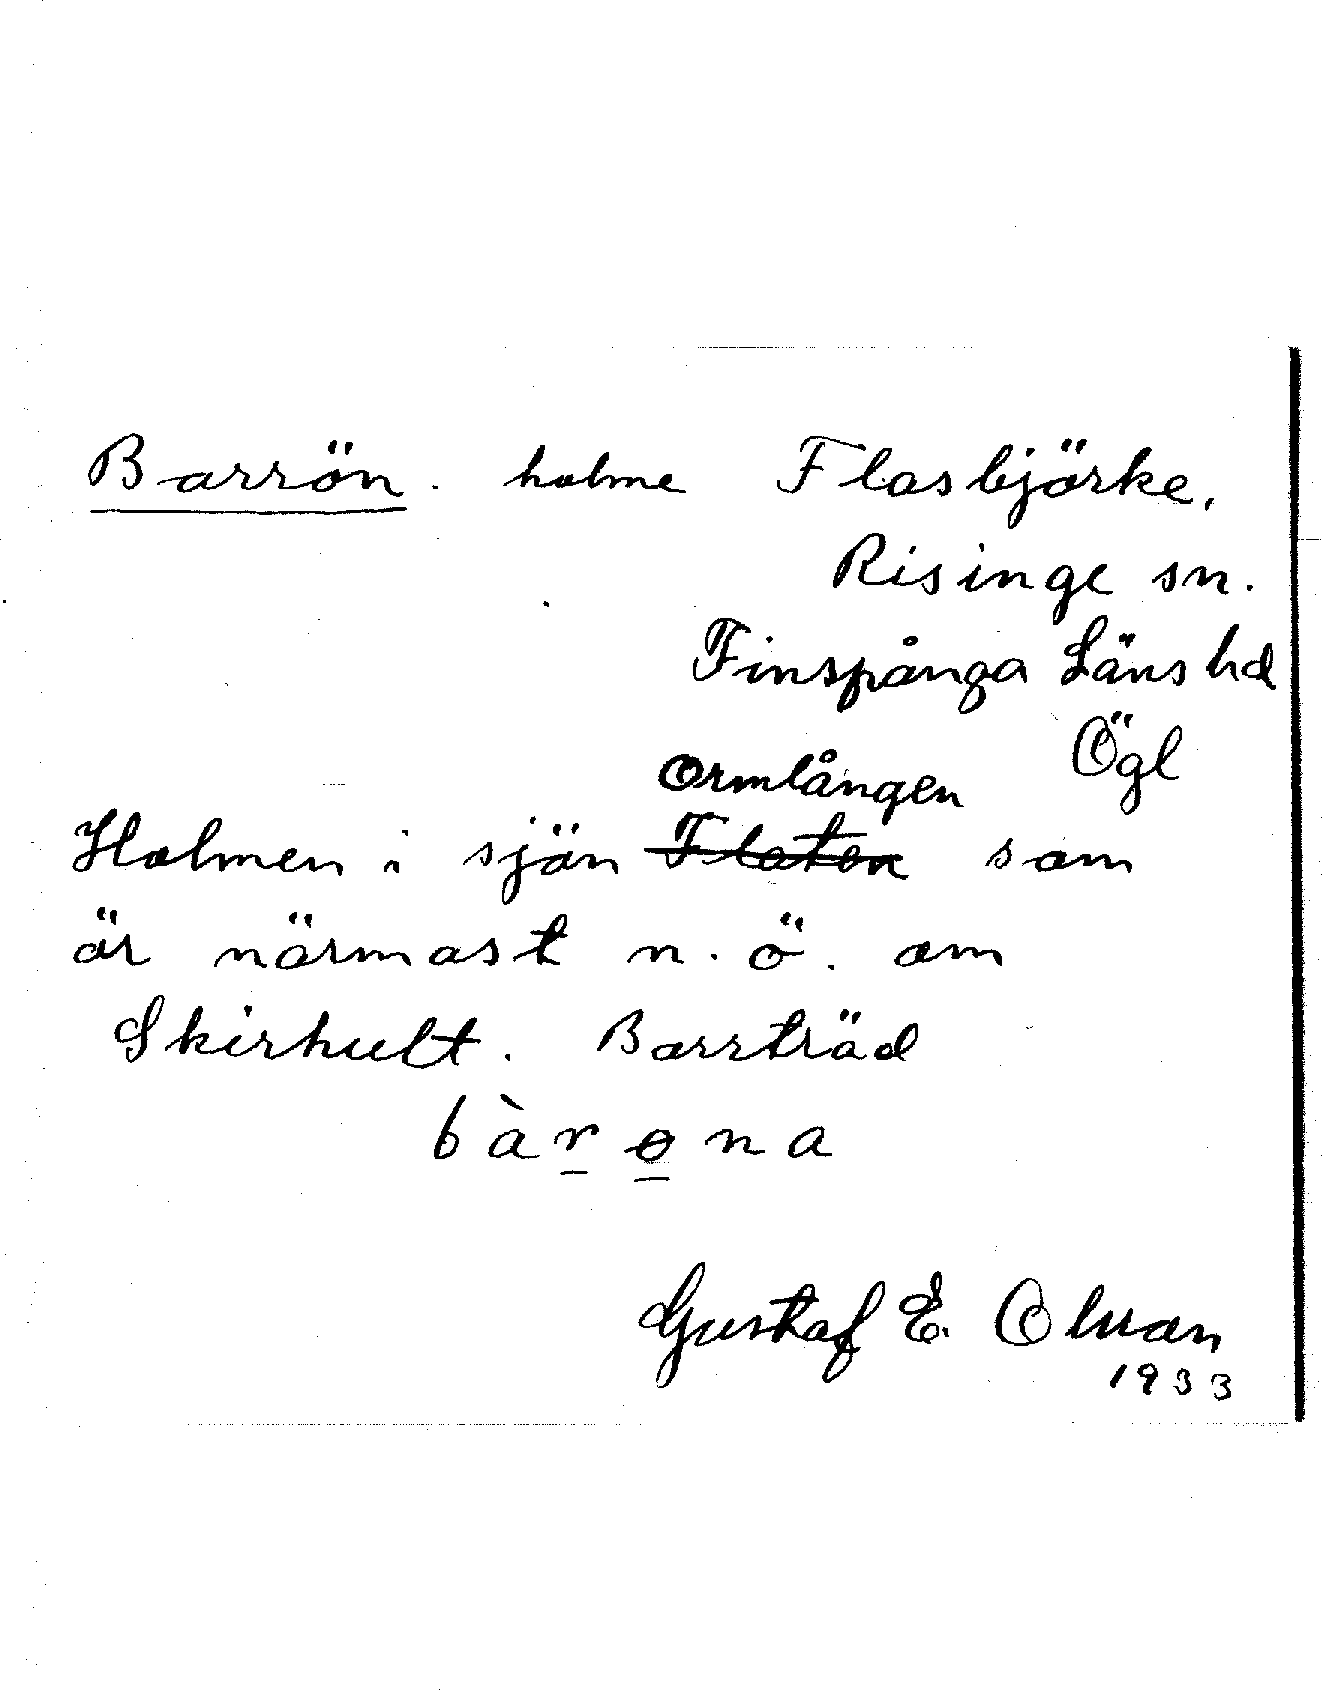 Barrön. holme Flasbjörke,
Risinge sn.
Finspånga Läns hd
Ögl
Ormlången
Holmen i sjön Flaten som
är närmast n.ö. om
Skirhult. Barrträd
bàrɵna
Gustaf E. Olwan
1933